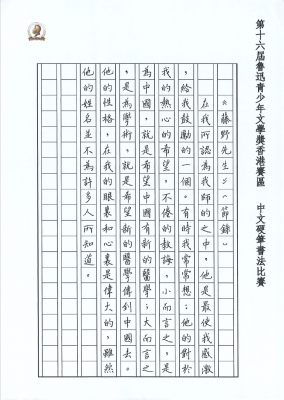 第十六屆魯迅青少年文學獎香港賽區 中文硬筆書法比賽
《藤野先生》（節錄）
在我所認為我師的之中，他是最使我感激
，給我鼓勵的一個。有時我常常想：他的對於
我的熱心的希望，不倦的教誨，小而言之，是
為中國，就是希望中國有新的醫學；大而言之
，是為學術，就是希望新的醫學傳到中國去。
他的性格，在我的眼裏和心裏是偉大的，雖然
他的姓名並不為許多人所知道。